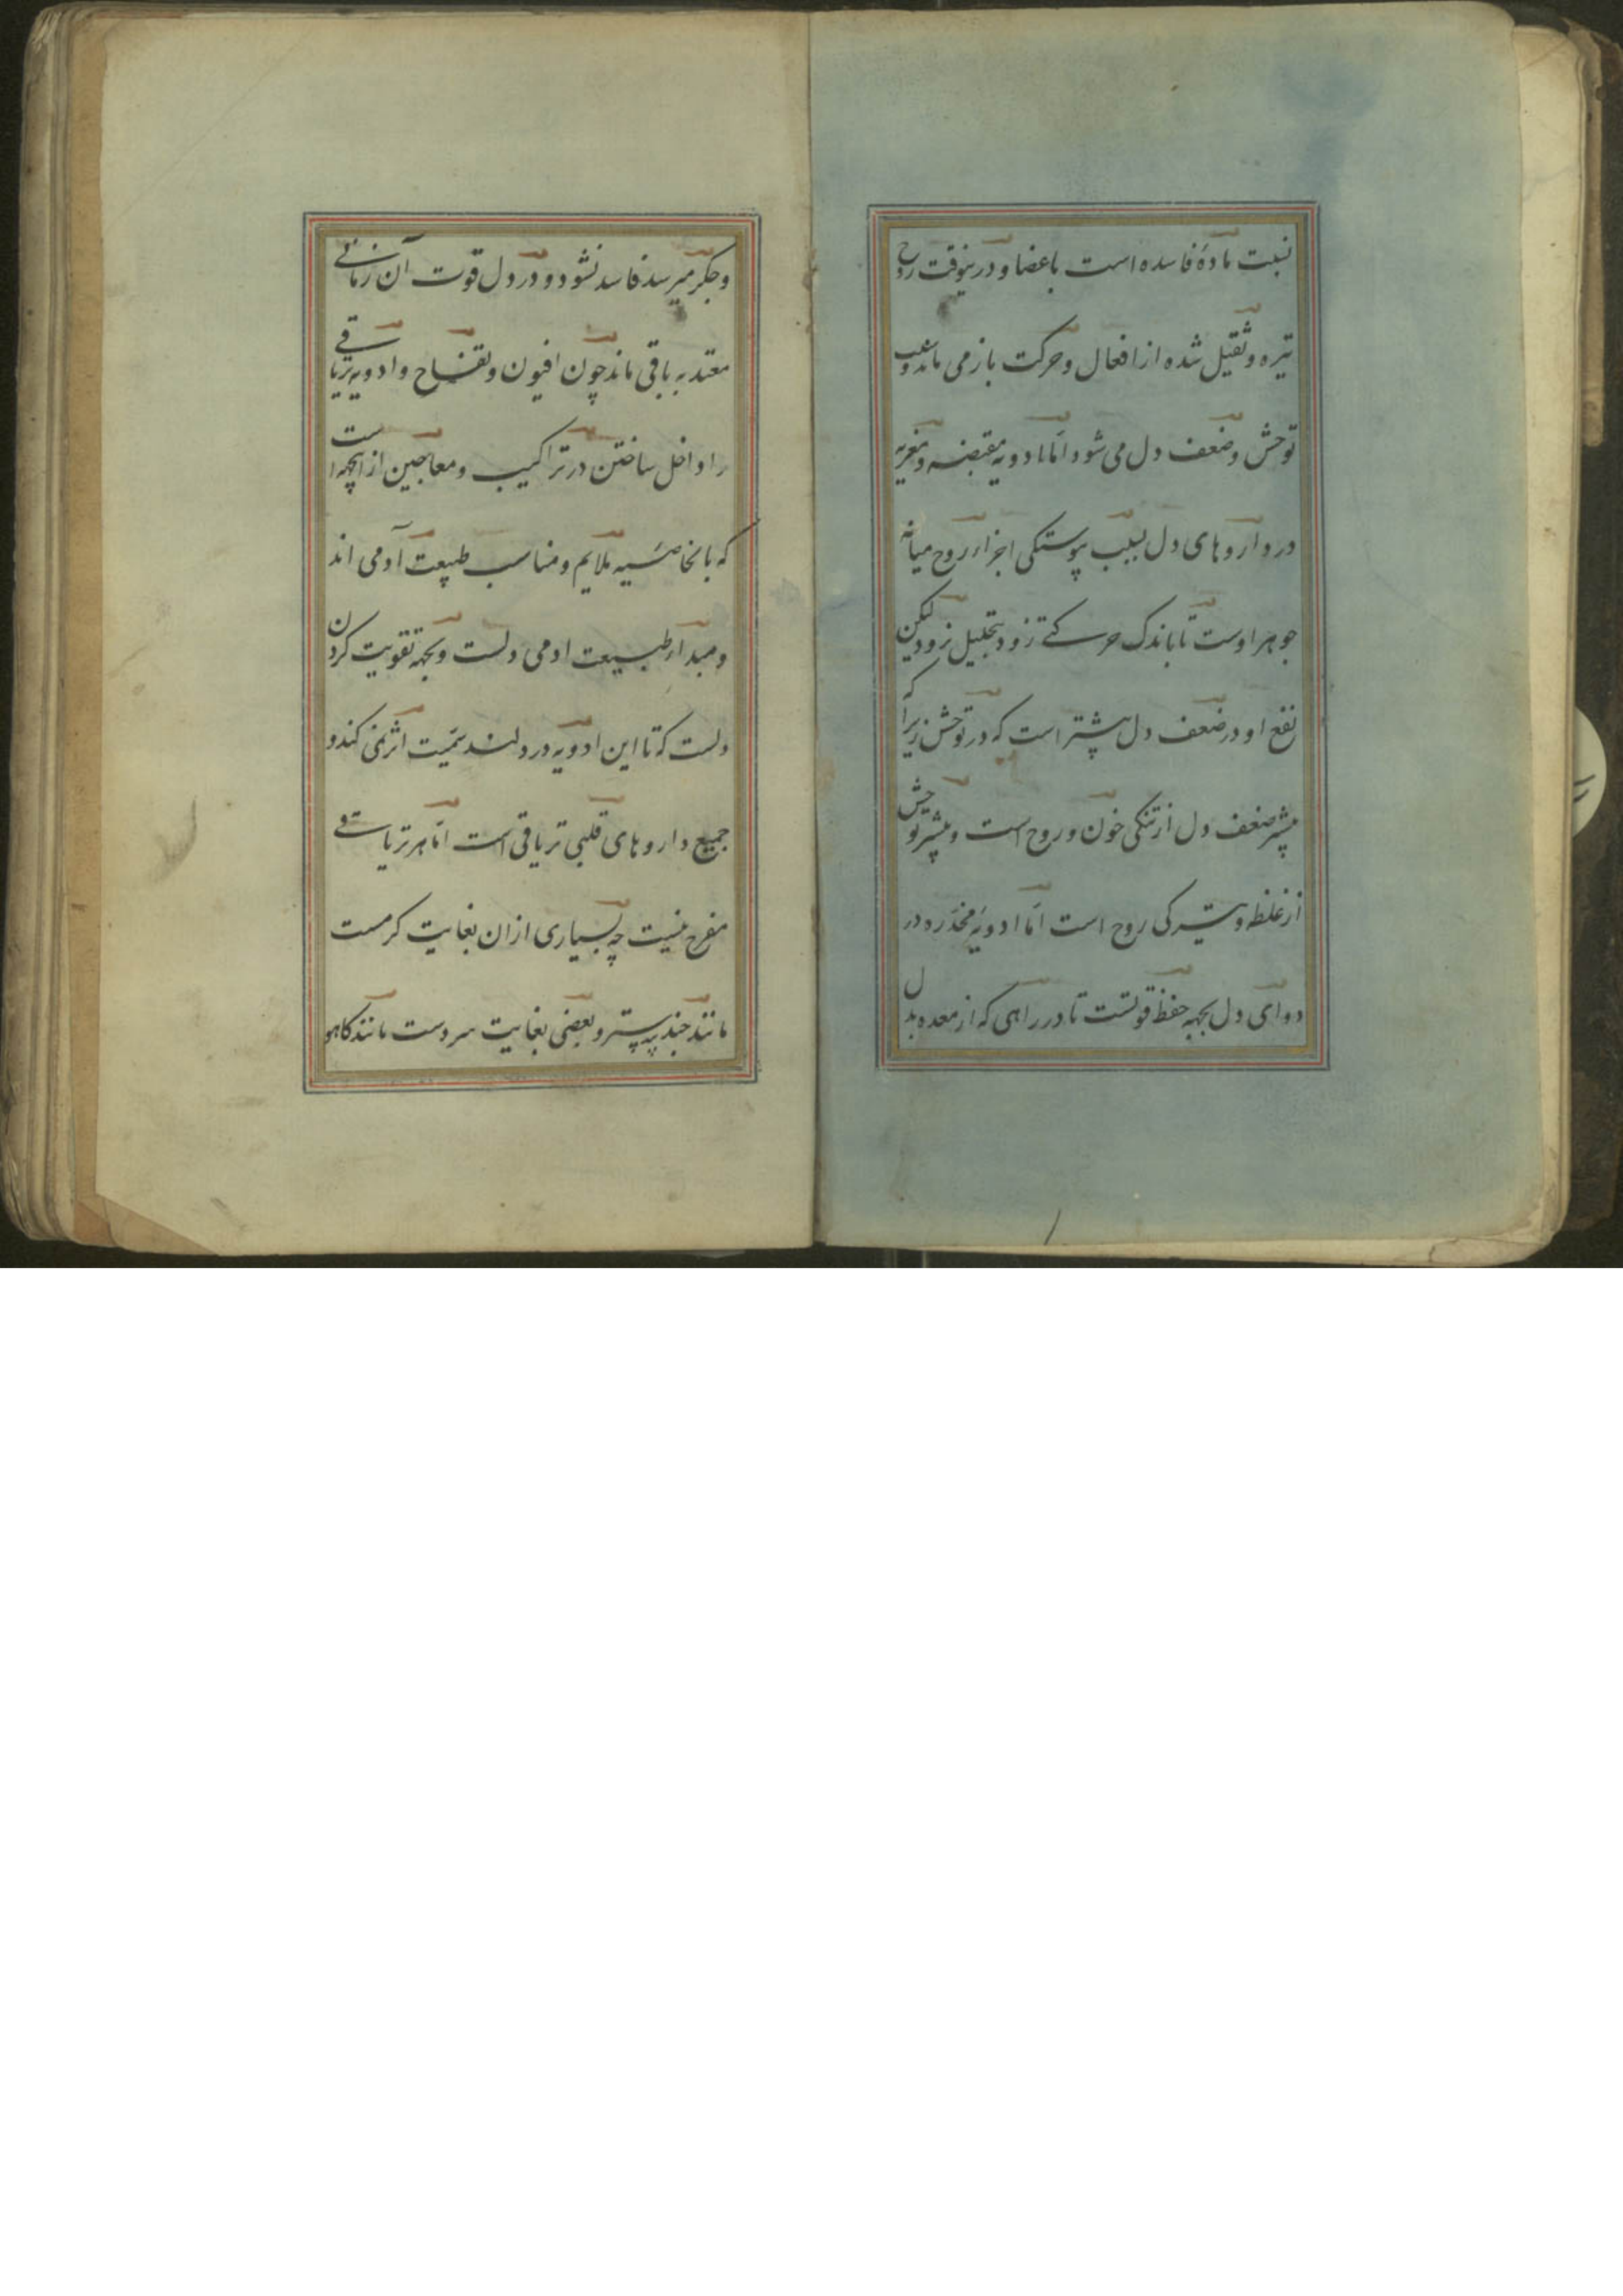 نسبت مادهٔ فاسده است باعضا و درینوقت روح
تیره و ثقیل شده از افعال و حرکت باز می ماند و سبب
توحش و ضعف دل می شود امّا ادویه مقبضه و مغریه
در داروهای دل بسبب پیوستکی اجزاء روح میانه
جوهر اوست تا باندک حرکتے زود بتحلیل نرود لیکن
نفع او در ضعف دل پیشتر است که در توحش زیرا که
پیشتر ضعف دل از تنکی خون و روح است و پیشتر توحش
از غلظ و تیرکی روح است امّا ادویهٔ مخدّره در
دوای دل بجهه حفظ قوتست تا در راهی که از معده بدل
و جکر میرسد فاسد نشود و در دل قوت آن زمانے
معتد به باقی ماند چون افیون و تفاح و ادویه تریاقے
را داخل ساختن در تراکیب و معاجین از انجهه است
که بالخاصّیه ملایم و مناسب طبیعت آدمی اند
و مبداء طبیعت ادمی دلست و بجهه تقویت کردن
دلست که تا این ادویه در دلند سمّیت اثر نمی کند و
جمیع داروهای قلبی تریاقی است امّا هر تریاقے
مفرح نیست چه بسیاری ازان بغایت کرمست
مانند جند بیدستر و بعضی بغایت سردست مانند کاهو